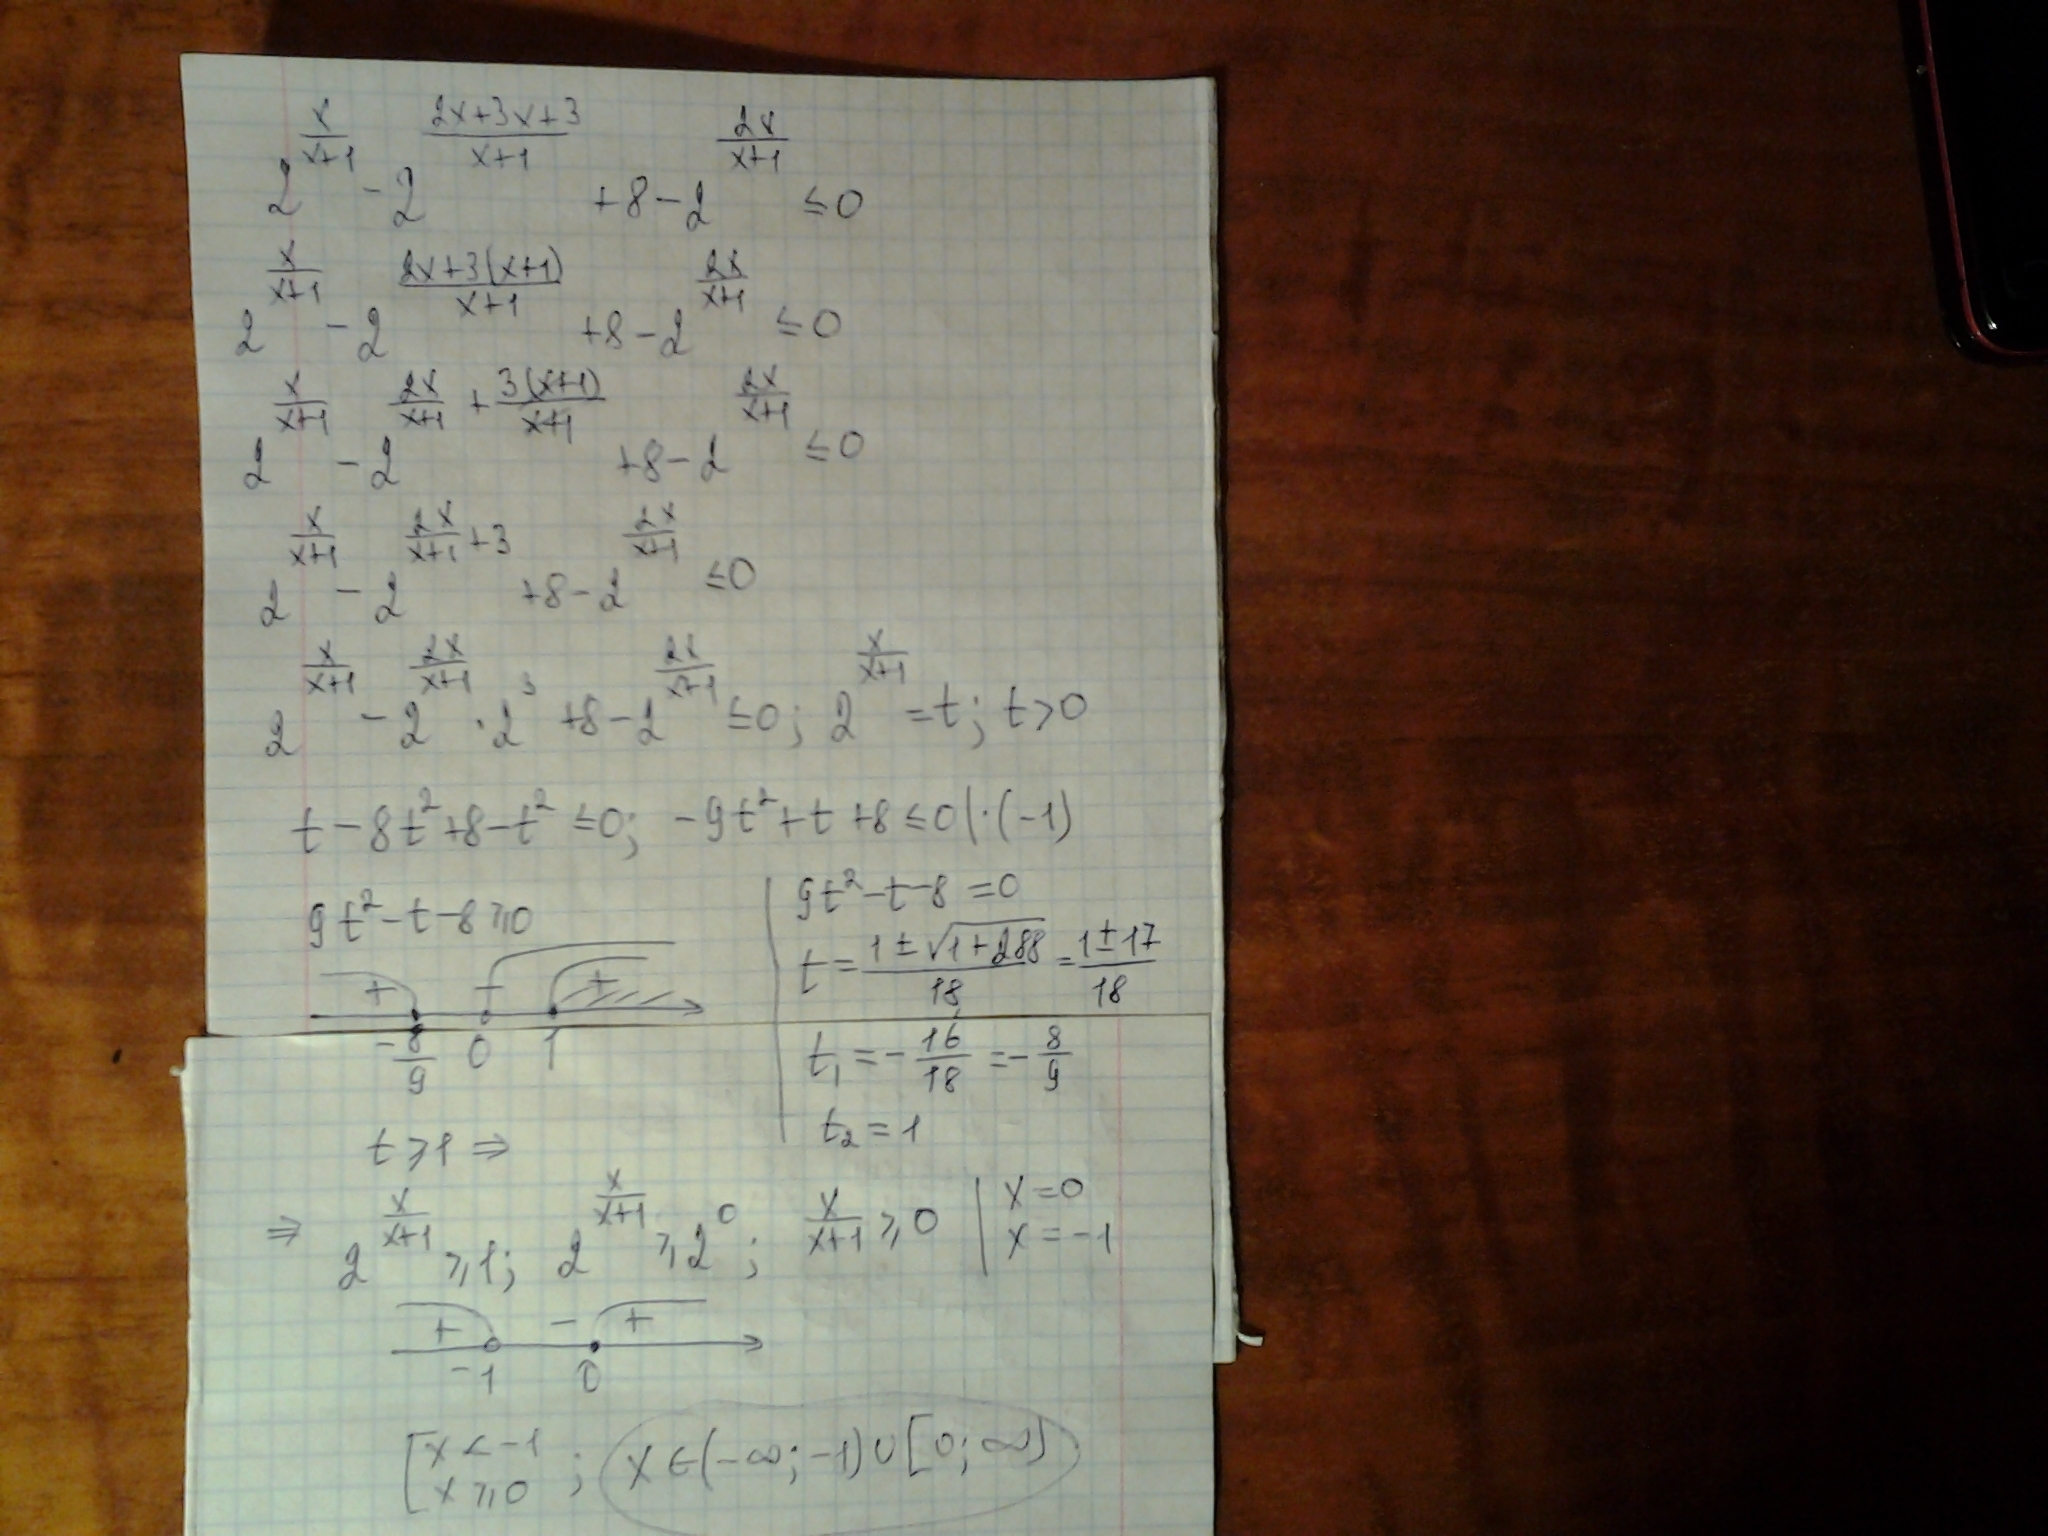 2^(x/(x+1)) - 2^((2x+3x+3)/(x+1)) + 8 - 2^(2x/(x+1)) ≤ 0
2^(x/(x+1)) - 2^((2x+3(x+1))/(x+1)) + 8 - 2^(2x/(x+1)) ≤ 0
2^(x/(x+1)) - 2^(2x/(x+1) + 3(x+1)/(x+1)) + 8 - 2^(2x/(x+1)) ≤ 0
2^(x/(x+1)) - 2^(2x/(x+1) + 3) + 8 - 2^(2x/(x+1)) ≤ 0
2^(x/(x+1)) - 2^(2x/(x+1)) · 2^3 + 8 - 2^(2x/(x+1)) ≤ 0; 2^(x/(x+1)) = t; t > 0
t - 8t² + 8 - t² ≤ 0; -9t² + t + 8 ≤ 0 | · (-1)
9t² - t - 8 ≥ 0
+ - +
-8/9 0 1
9t² - t - 8 = 0
t = (1 ± √(1+288))/18 = (1 ± 17)/18
t₁ = -16/18 = -8/9
t₂ = 1
t ≥ 1 ⇒
⇒ 2^(x/(x+1)) ≥ 1; 2^(x/(x+1)) ≥ 2^0; x/(x+1) ≥ 0 | x = 0
x = -1
+ - +
-1 0
[ x < -1
x ≥ 0 ; x ∈ (-∞; -1) ∪ [0; ∞)